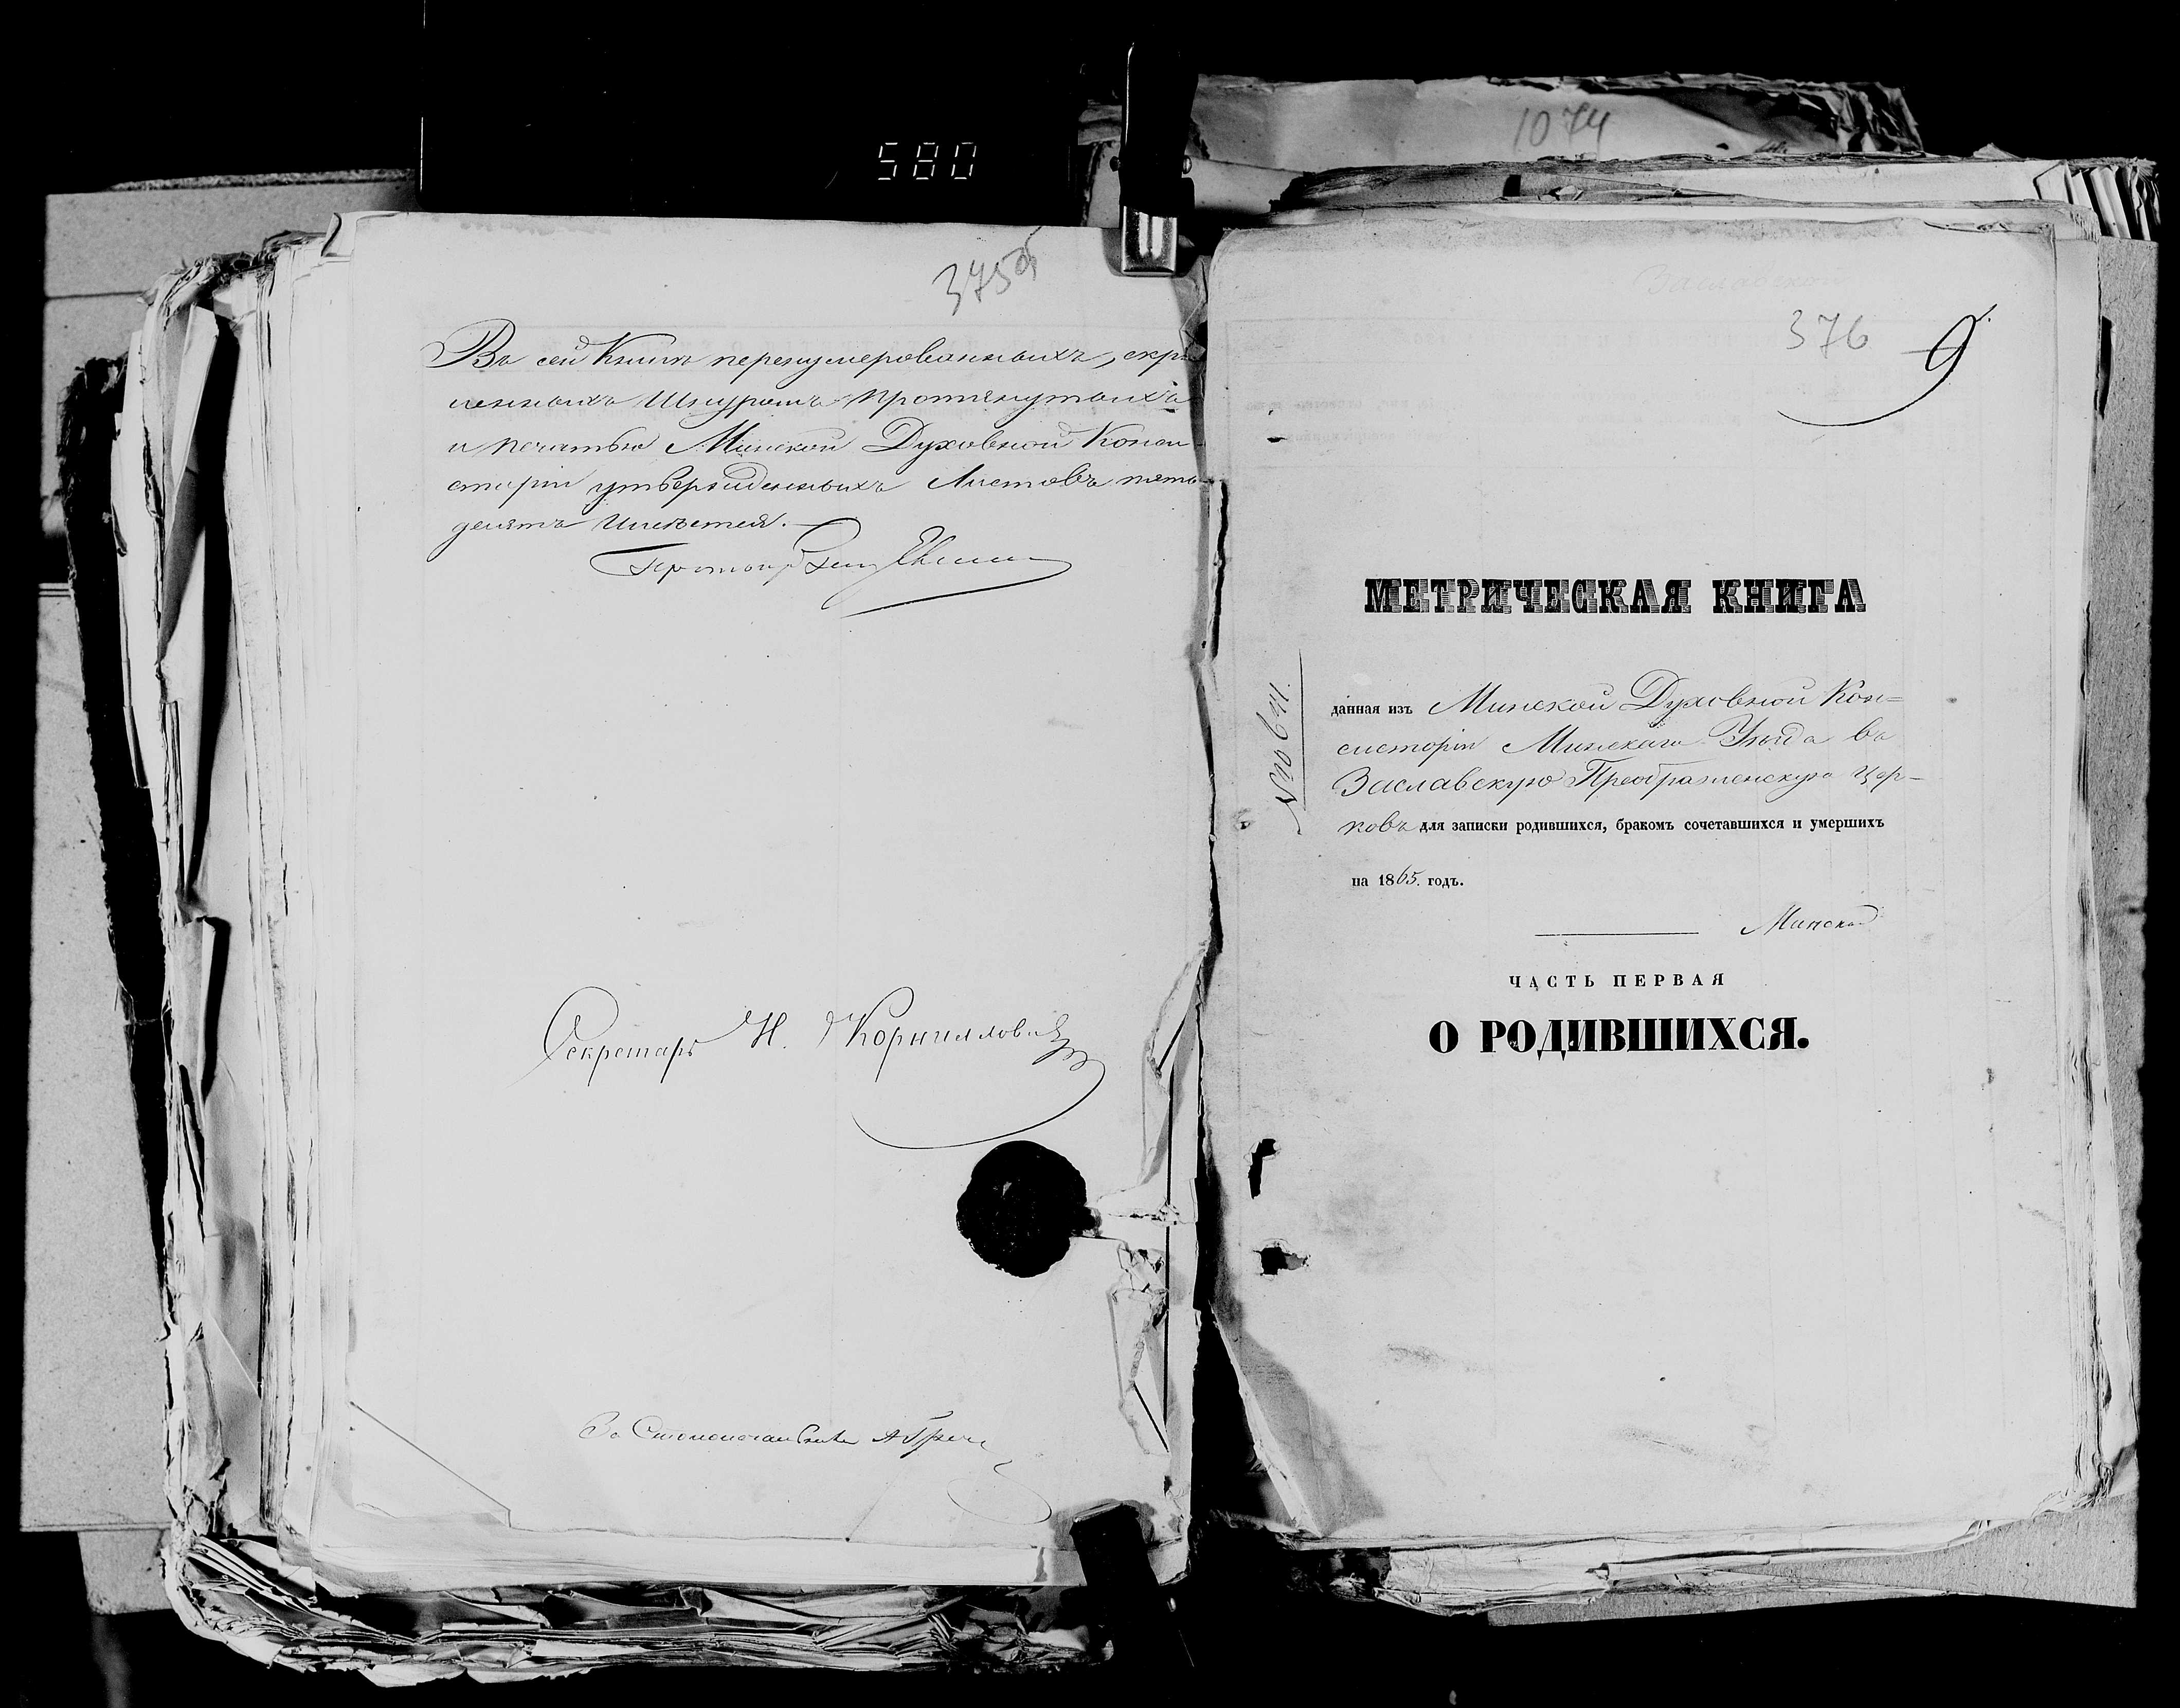 580
1074
375об
Въ сей Книгѣ перенумерованныхъ, скрѣ
пленныхъ Шнуромъ протянутыхъ
и печатью Минской Духовной Конси
сторіи утвержденныхъ Листовъ пять
десятъ Шесть
Секретарь Н. Корниловичъ
За Столоначальника
Заславской
376
9
МЕТРИЧЕСКАЯ КНИГА
данная изъ Минской Духовной Кон=
систоріи Минскаго Уѣзда въ
Заславскую Преображенскую Цер-
ковь для записки родившихся, бракомъ сочетавшихся и умершихъ
на 1865. годъ.
Минска
ЧАСТЬ ПЕРВАЯ
О РОДИВШИХСЯ.